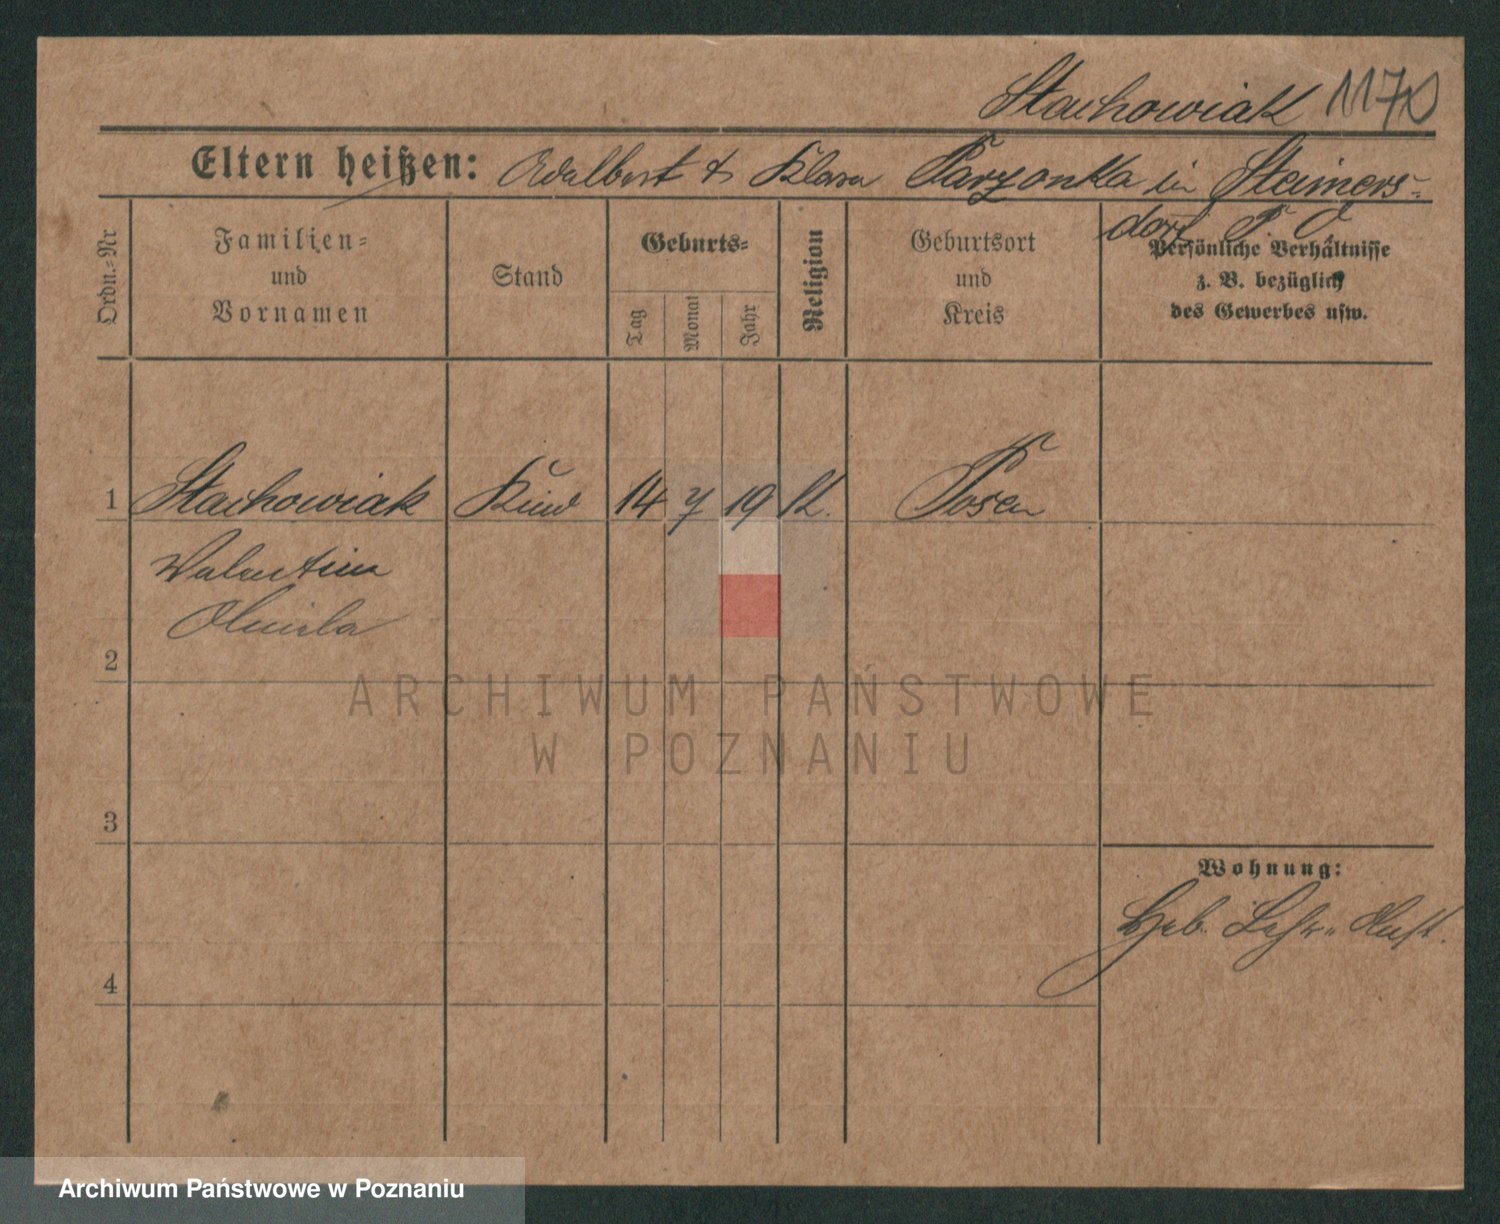 Stachowiak 1170
Eltern heißen: Adalbert & Klara Parzonka in Steimers-
dorf P. O.
Ordn.-Nr
Familien-
und
Vornamen
Stand
Geburts-
Tag
Monat
Jahr
Religion
Geburtsort
und
Kreis
Persönliche Verhältnisse
z. B. bezüglich
des Gewerbes usw.
1 Stachowiak Kind 14 7 19 k. Posen
Valentina
2
ARCHIWUM PAŃSTWOWE
W POZNANIU
3
Wohnung:
Geb. Lehr-Anst.
4
Archiwum Państwowe w Poznaniu